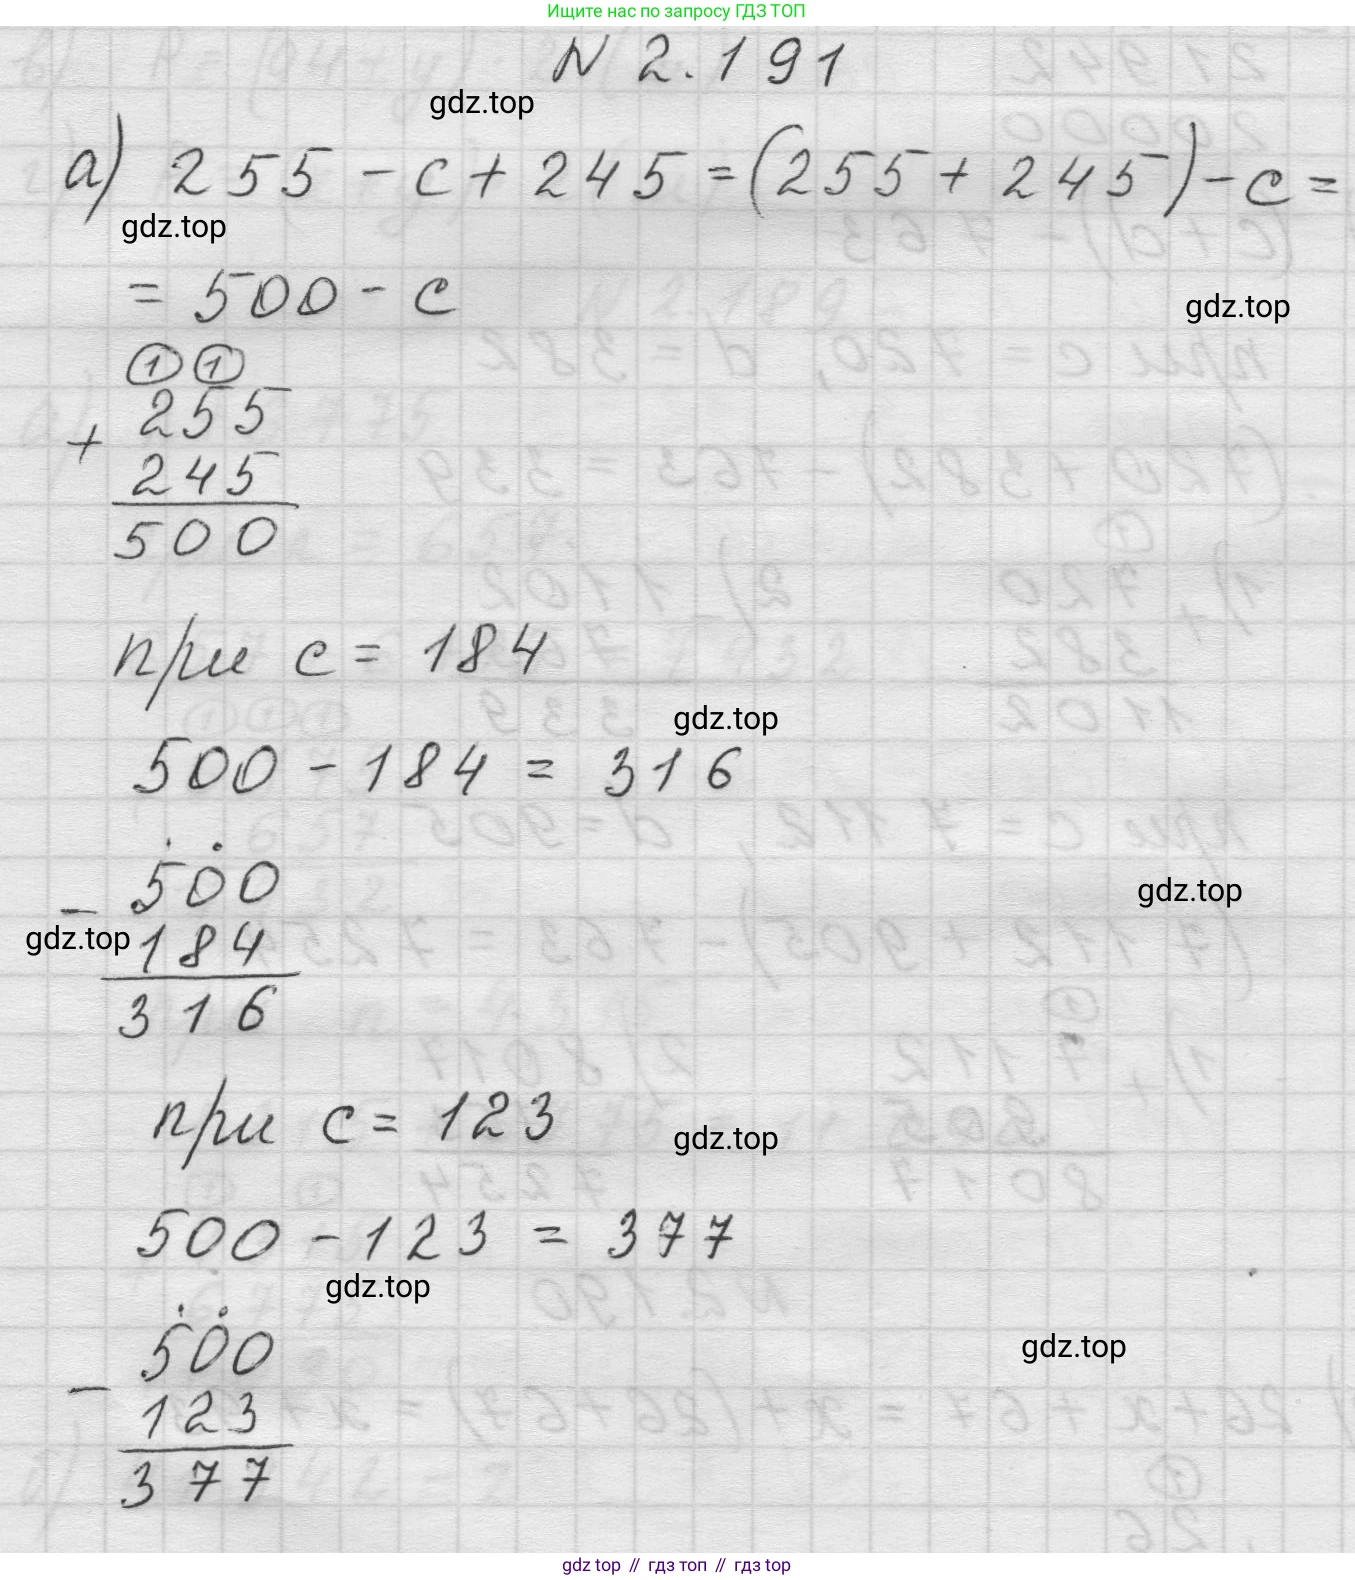 Ищите нас по запросу ГДЗ ТОП
N 2.191
gdz.top
а) 255 - c + 245 = (255 + 245) - c =
gdz.top
= 500 - c
gdz.top
1 1
255
+
245
500
при c = 184
gdz.top
500 - 184 = 316
500
-
gdz.top
184
gdz.top
316
при c = 123
gdz.top
500 - 123 = 377
gdz.top
500
gdz.top
-
123
377
gdz top // гдз топ // гдз top